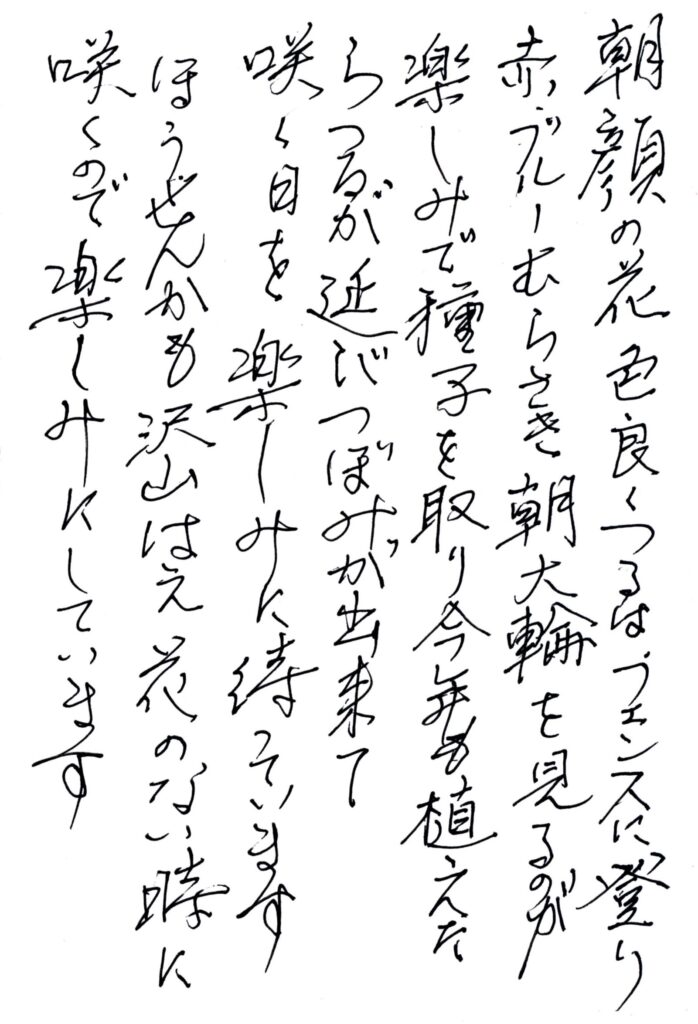 朝顔の花色良くつるはフェンスに登り
赤、ブルーむらさき朝大輪を見るのが
楽しみで種子を取り今年も植えた
らつるが延びつぼみが出来て
咲く日を楽しみに待っています
ほうせんかも沢山はえ花のない時に
咲くので楽しみにしています